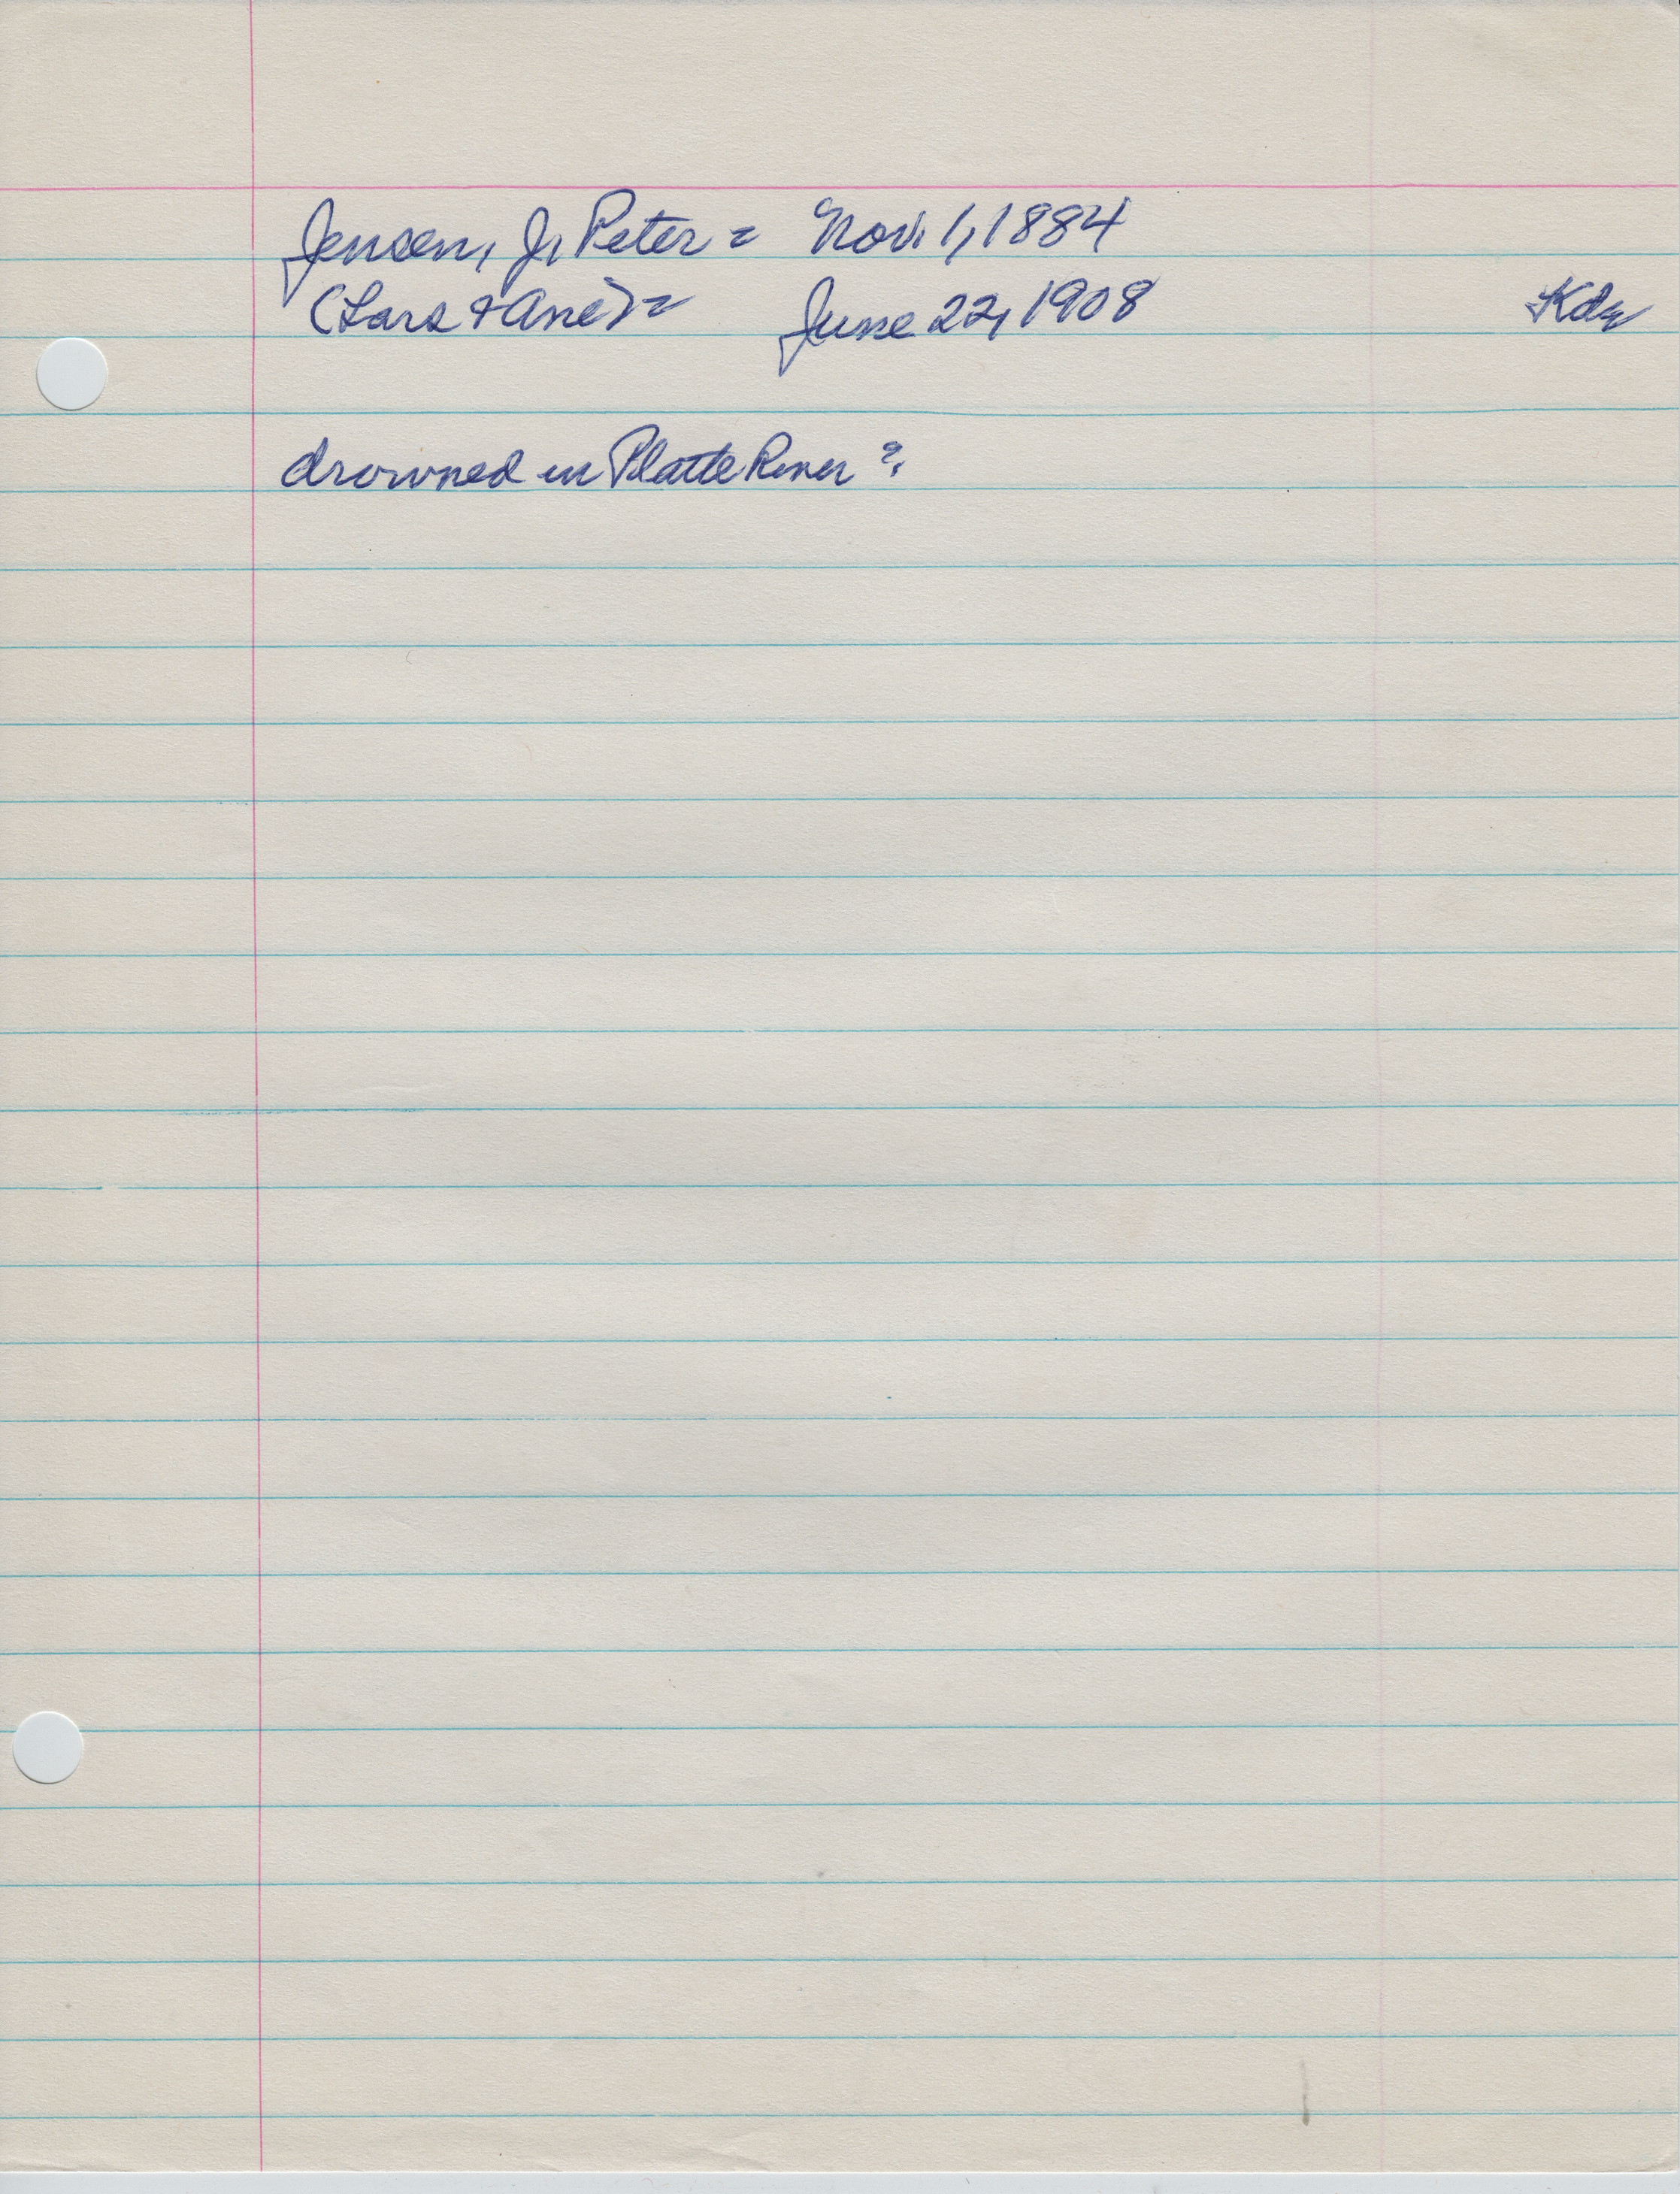 Jensen, J. Peter = Nov. 1, 1884
(Lars & Ane) = June 22, 1908
drowned in Platte River ?